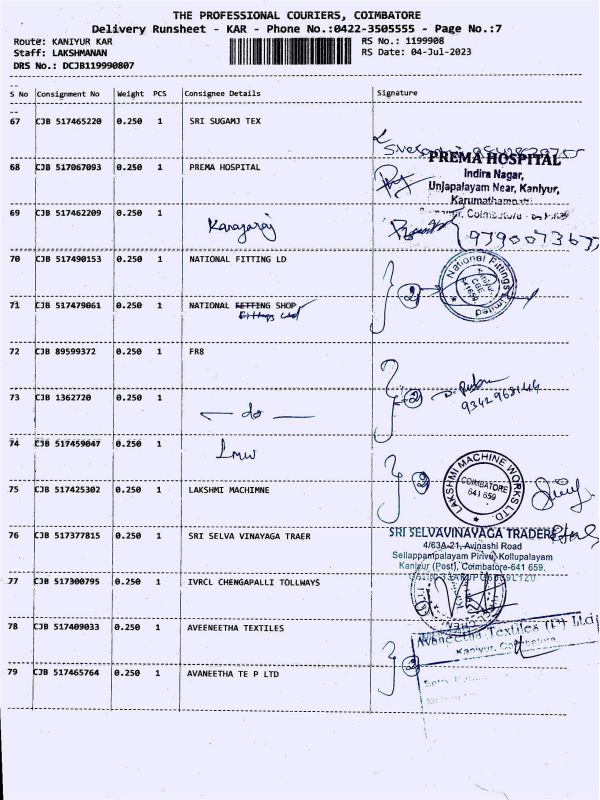 THE PROFESSIONAL COURIERS, COIMBATORE
Delivery Runsheet - KAR - Phone No.:0422-3505555 - Page No.:7
Route: KANIYUR KAR
RS No.: 1199908
Staff: LAKSHMANAN
RS Date: 04-Jul-2023
DRS No.: DCJB119990807
S No Consignment No Weight PCS Consignee Details Signature
67 CJB 517465220 0.250 1 SRI SUGAMJ TEX
68 CJB 517067093 0.250 1 PREMA HOSPITAL
PREMA HOSPITAL
Indira Nagar,
Unjapalayam Near, Kaniyur,
Karumathampatti
69 CJB 517462209 0.250 1
Kanagaraj
70 CJB 517490153 0.250 1 NATIONAL FITTING LD
2
National Fittings Limited
641 659
71 CJB 517479061 0.250 1 NATIONAL FETTING SHOP
Fittings Ltd
72 CJB 89599372 0.250 1 FR8
73 CJB 1362720 0.250 1
do
2
9342968144
74 CJB 517459047 0.250 1
Lmw
75 CJB 517425302 0.250 1 LAKSHMI MACHIMNE
2
LAKSHMI MACHINE WORKS LTD.
COIMBATORE
641 659
76 CJB 517377815 0.250 1 SRI SELVA VINAYAGA TRAER
SRI SELVAVINAYAGA TRADERS
4/63A-21, Avinashi Road
Sellappampalayam Pirivu, Kollupalayam
Kaniyur (Post), Coimbatore-641 659.
77 CJB 517300795 0.250 1 IVRCL CHENGAPALLI TOLLWAYS
78 CJB 517409033 0.250 1 AVEENEETHA TEXTILES
Avaneetha Textiles (P) Ltd
Kaniyur, Coimbatore
2
79 CJB 517465764 0.250 1 AVANEETHA TE P LTD